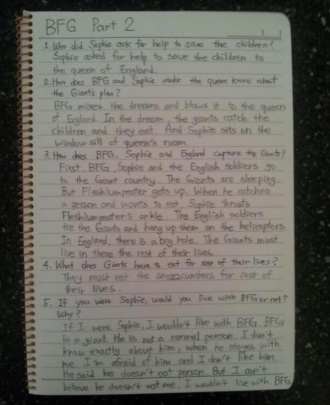 BFG Part 2
1. Who did Sophie ask for help to save the children?
Sophie asked for help to save the children to
the queen of England.
2. How does BFG and Sophie make the queen know about
the Giants plan?
BFG mixes the dreams and blows it to the queen
of England. In the dream, the giants catch the
children and they eat. And Sophie sits on the
window sill of queen's room.
3. How does BFG, Sophie and England capture the Giants?
First, BFG, Sophie and the English soldiers go
to the Giant country. The Giants are sleeping.
But Fleshlumpeater gets up. When he catches
a person and wants to eat, Sophie
Fleshlumpeater's ankle. The English soldiers
tie the Giants and hang up them on the helicopters.
In England, there is a big hole. The Giants must
live in there the rest of their lives.
4. What does Giants have to eat for rest of their lives?
They must eat the snozzcumbers for rest of
their lives.
5. If you were Sophie, would you live with BFG or not?
Why?
If I were Sophie, I wouldn't live with BFG. BFG
is a giant. He is not a normal person. I don't
know exactly about him, when he stays with
me. I'm afraid of him and I don't like him.
He said he doesn't eat person. But I can't
believe he doesn't eat me. I wouldn't live with BFG.